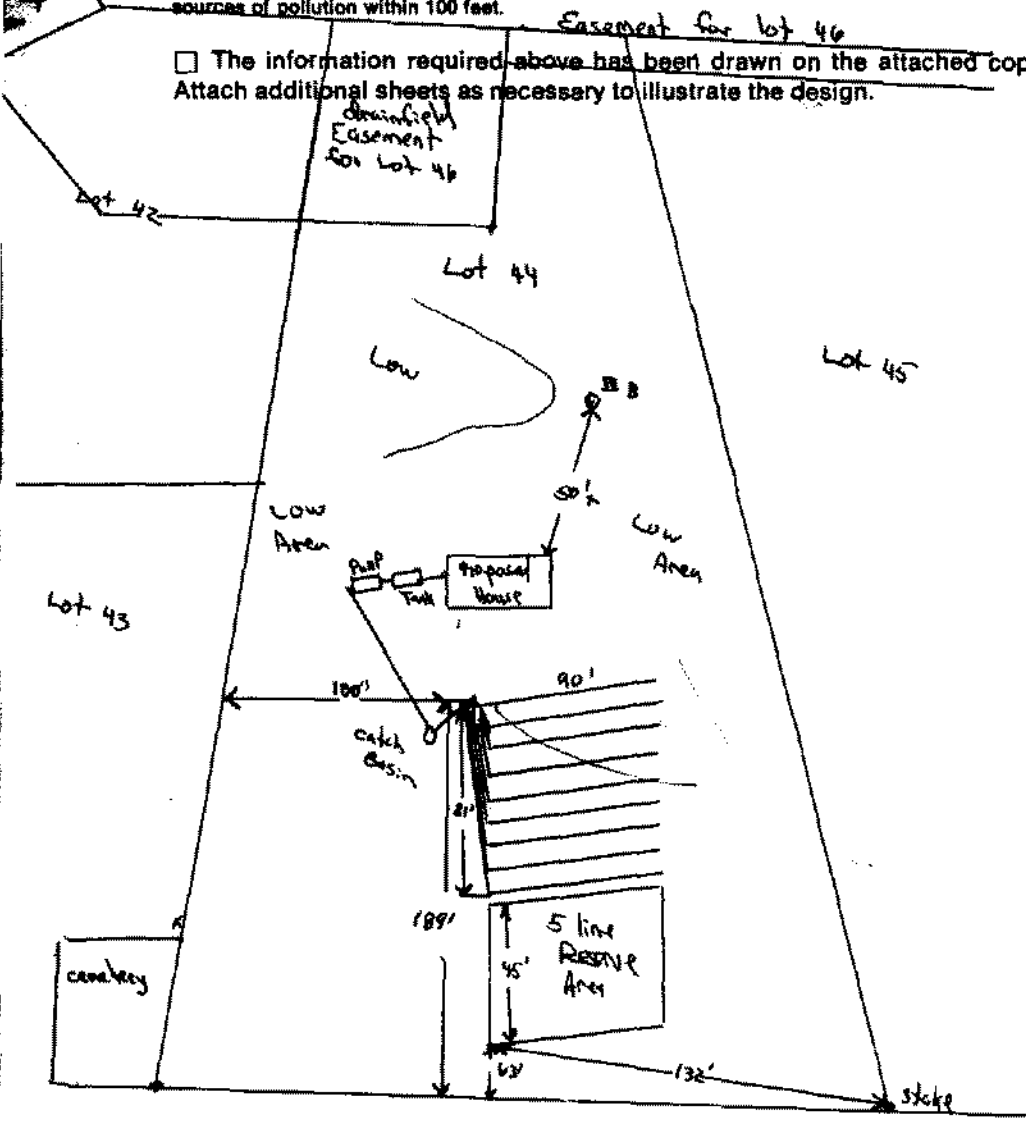 sources of pollution within 100 feet.
Easement for lot 46
☐ The information required above has been drawn on the attached cop
Attach additional sheets as necessary to illustrate the design.
drainfield
Easement
for Lot 46
Lot 42
Lot 44
Low
Lot 45
50'±
Low
Area
Low
Area
Pump
Tank
Proposed
House
Lot 43
100'
90'
catch
Basin
81'
189'
5 line
Reserve
Area
45'
cemetery
63'
132'
stake